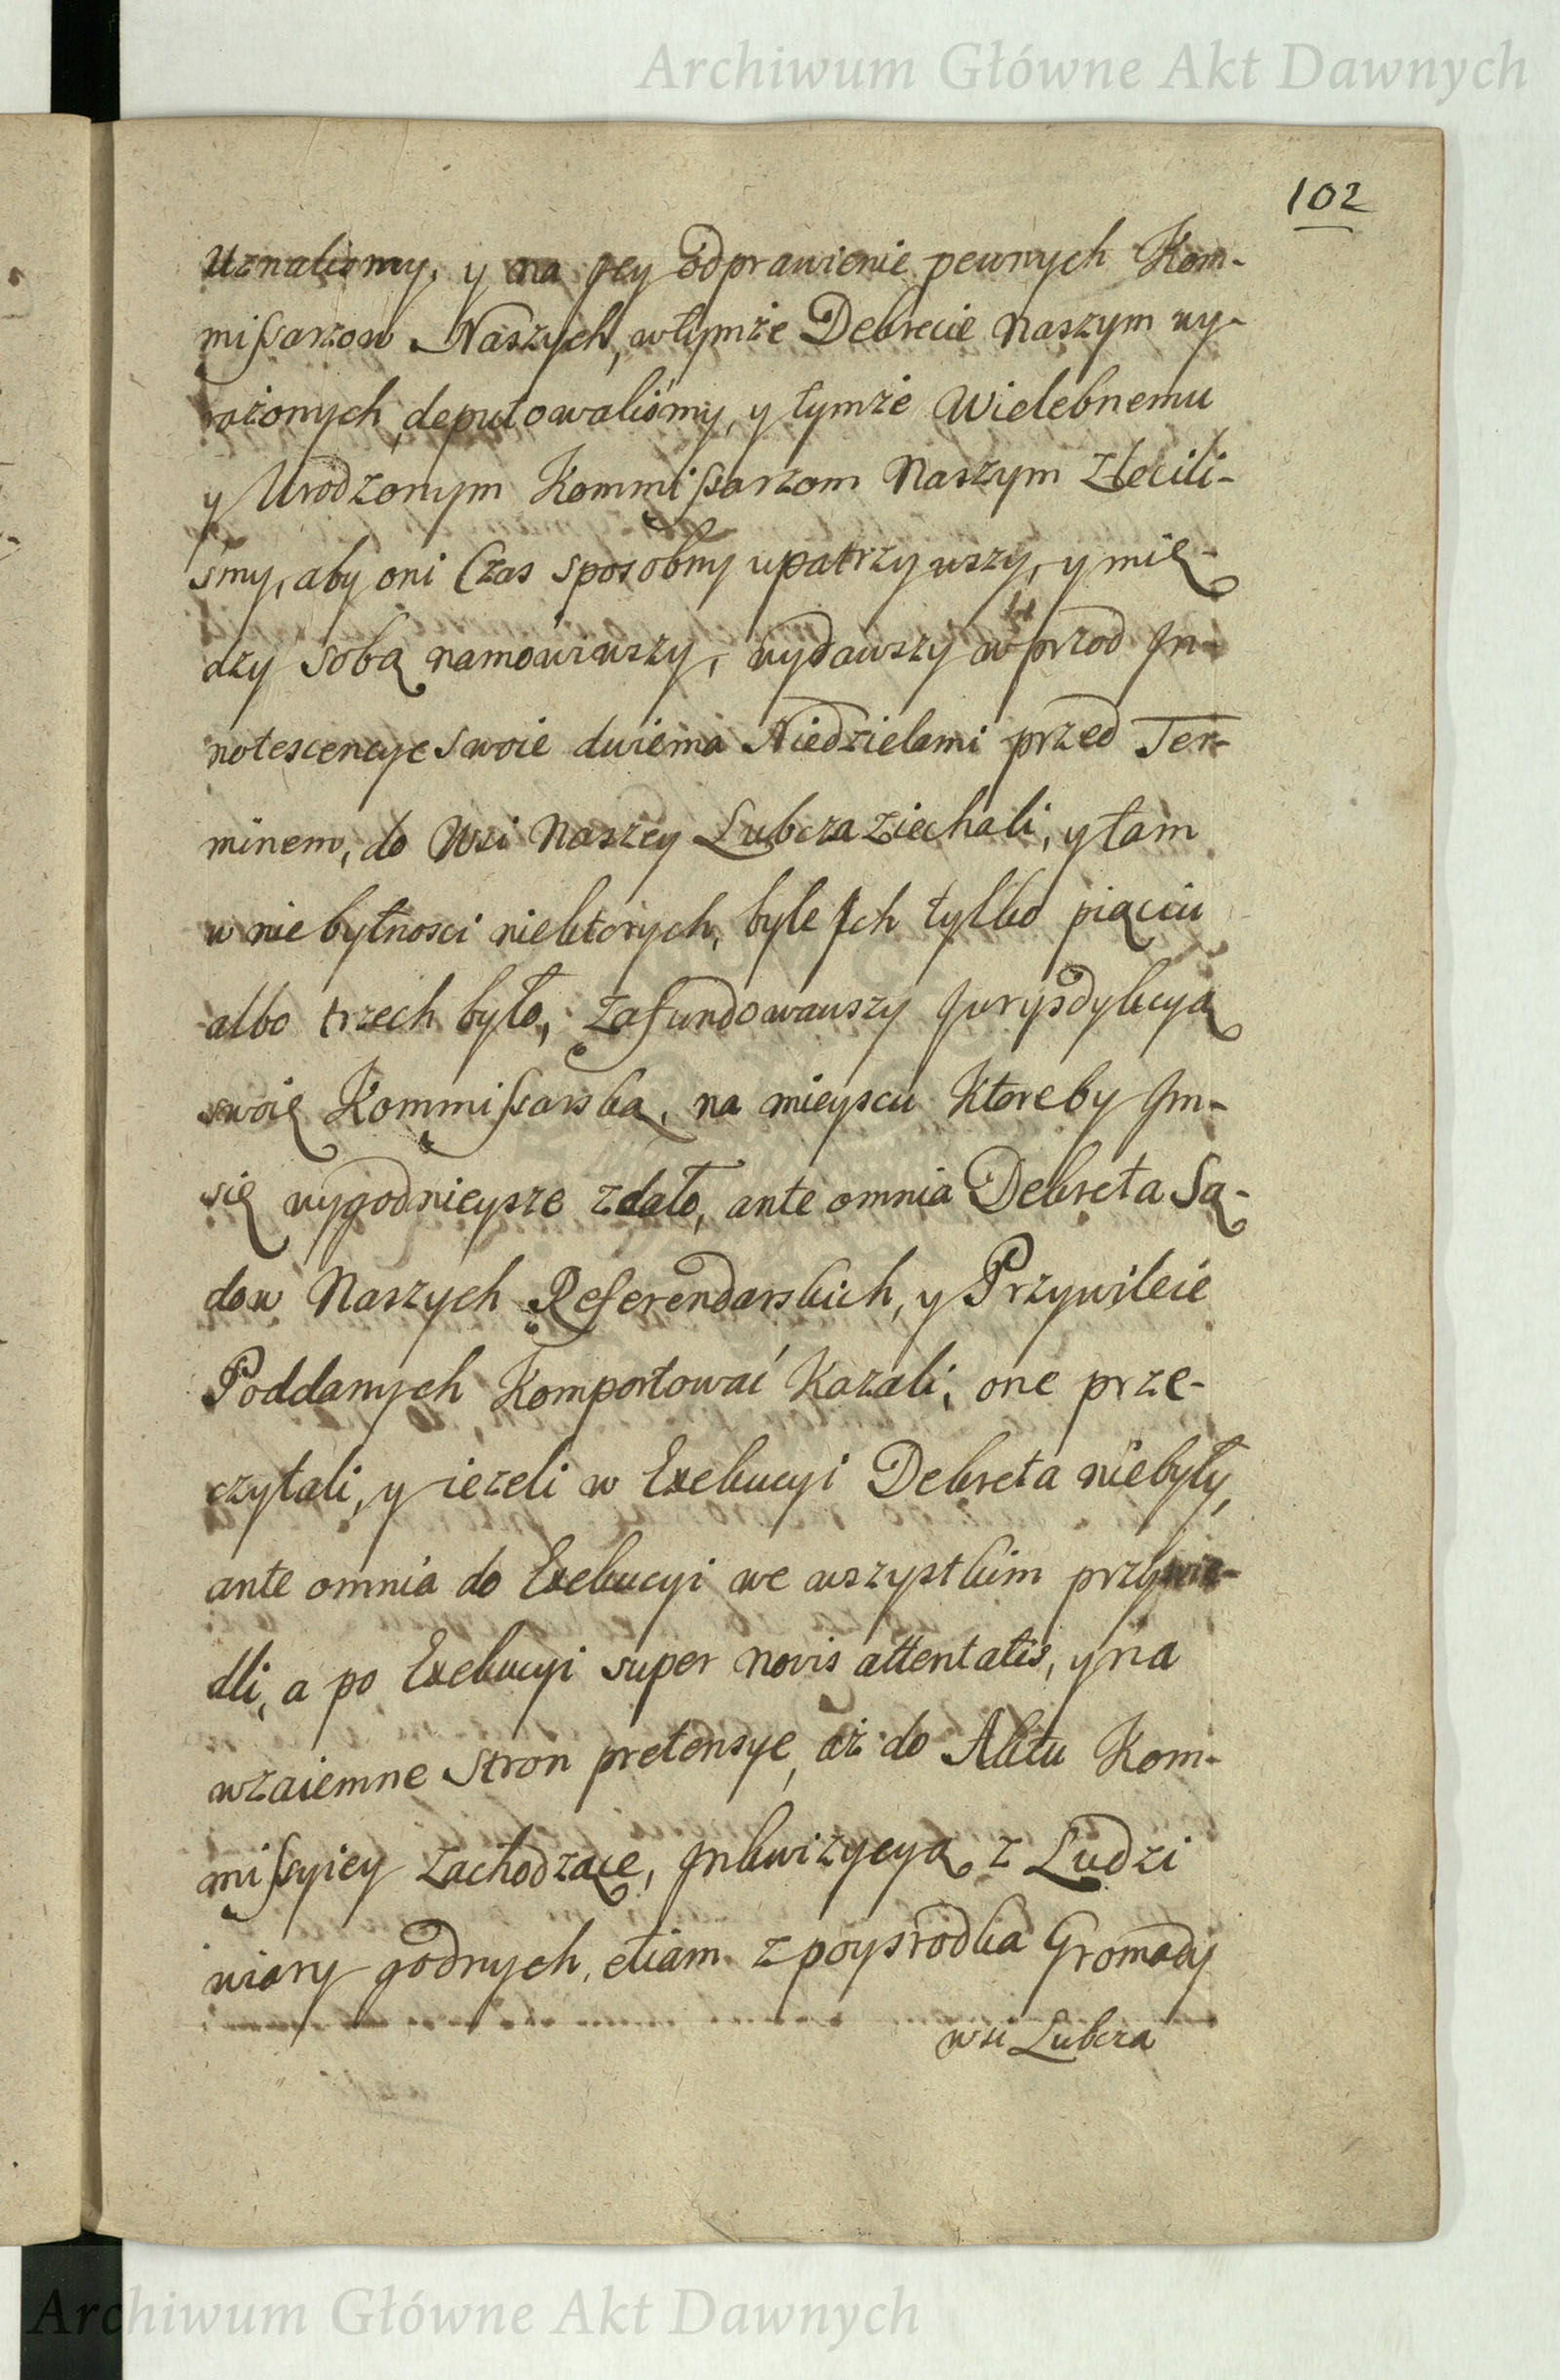 Archiwum Główne Akt Dawnych
102
Uznaliśmy, y na Jey odprawienie pewnych Kom-
missarzow Naszych, w tymże Dekrecie Naszym wy-
rażonych deputowaliśmy, y tymże Wielebnemu
y Urodzonym Kommissarzom Naszym Zlecili-
śmy, aby oni Czas sposobny upatrzywszy, y mię-
dzy sobą namówiwszy, wydawszy w przod In-
notescencye swoie dwiema Niedzielami przed Ter-
minem, do Wsi Naszey Lubcza ziechali, y tam
w niebytnosci niektorych, byle Ich tylko piąciu
albo trzech było, zafundowawszy Jurysdykcyą
swoię Kommissarską, na mieyscu Ktoreby Im-
się wygodnieysze zdało, ante omnia Dekreta Są-
dow Naszych Referendarskich, y Przywileie
Poddanych Komportować Kazali, one prze-
czytali, y ieżeli w Exekucyi Dekreta niebyły,
ante omnia do Exekucyi we wszystkim przywie-
dli, a po Exekucyi super novis attentatis, y na
wzaiemne Stron pretensye, aż do Aktu Kom-
missyiey zachodzące, Inkwizycyą z Ludzi
wiary godnych, etiam z poysrodka Gromady
wsi Lubcza
Archiwum Główne Akt Dawnych